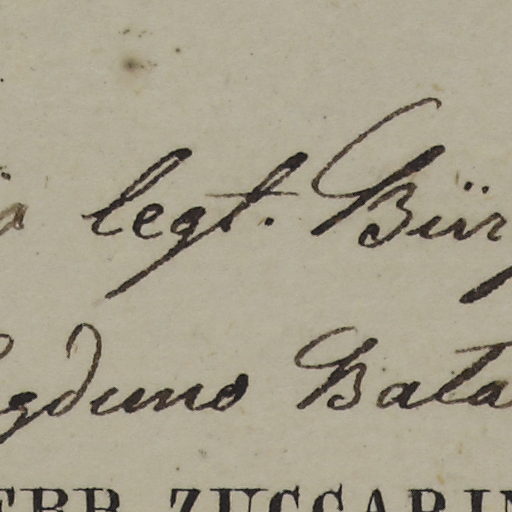 a legt. Bür
gduno Bata
ERB. ZUCCARIN